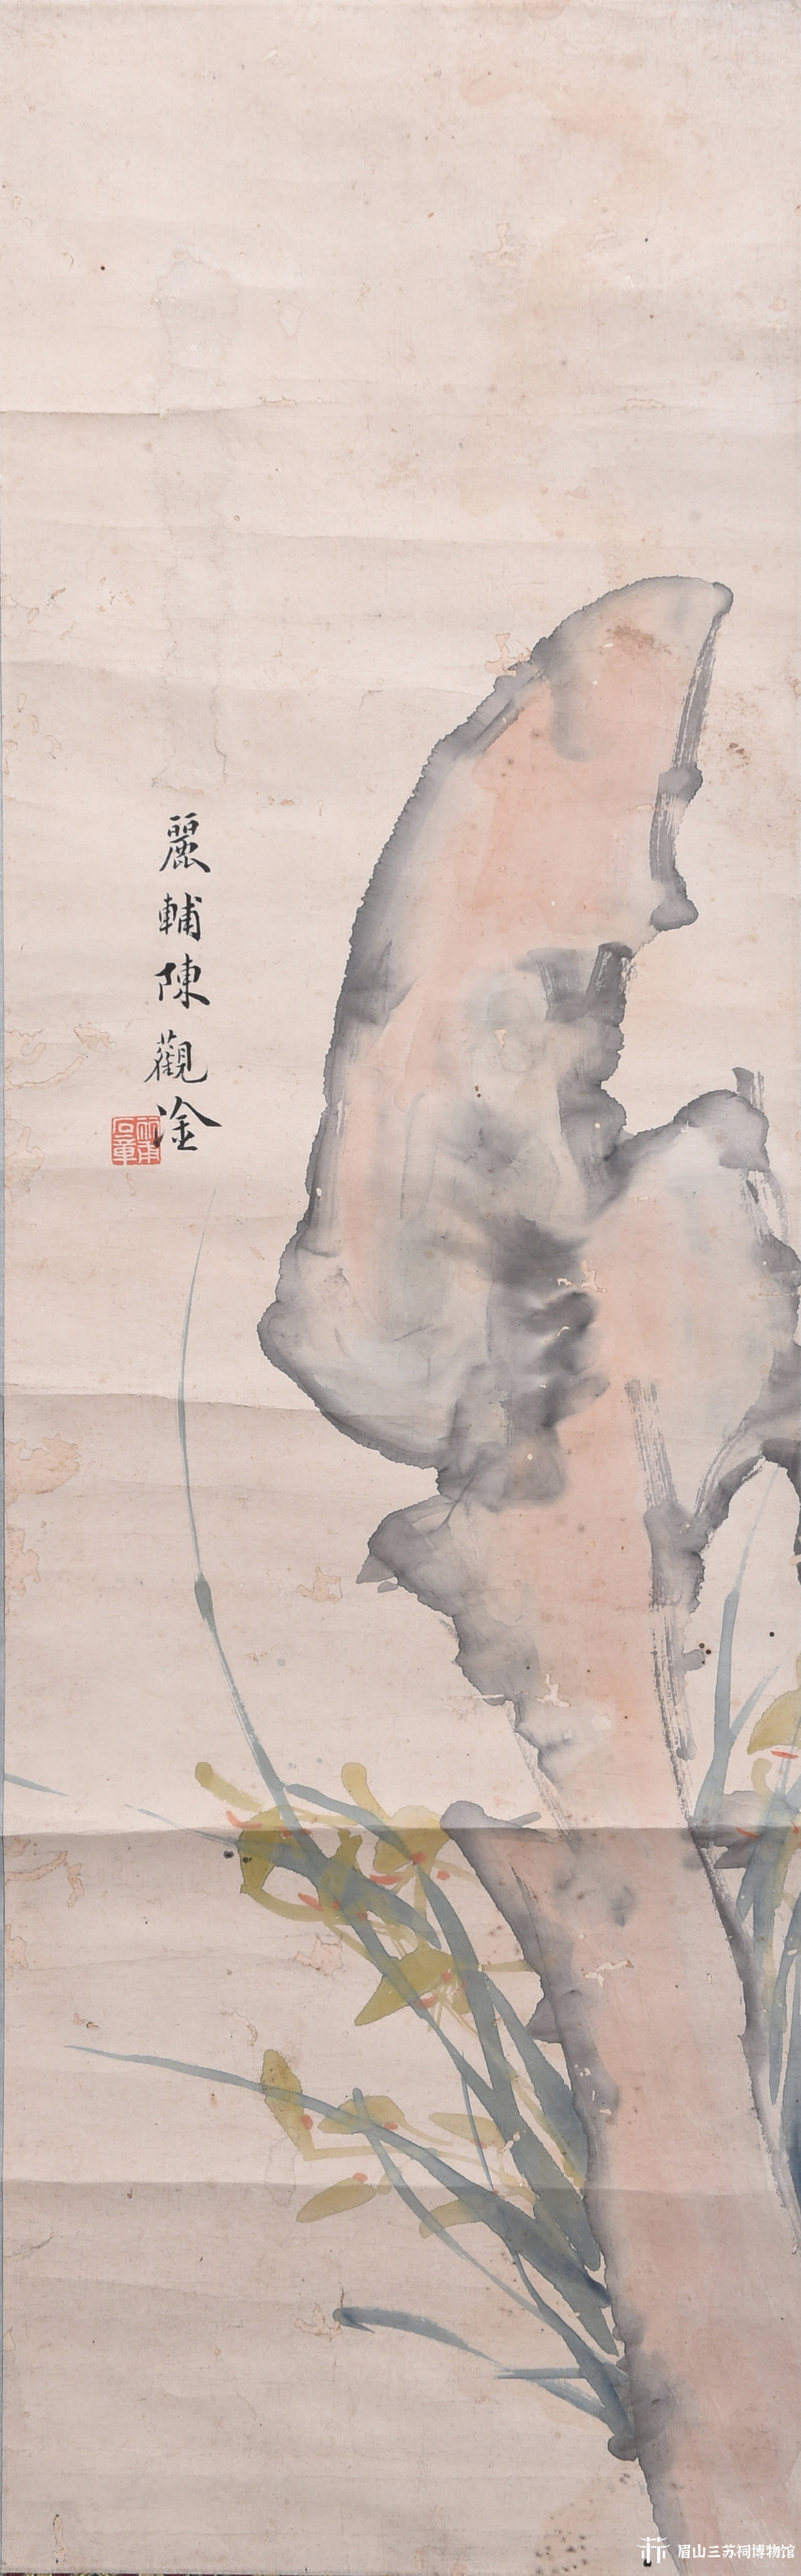 麗輔陳觀淦
眉山三苏祠博物馆